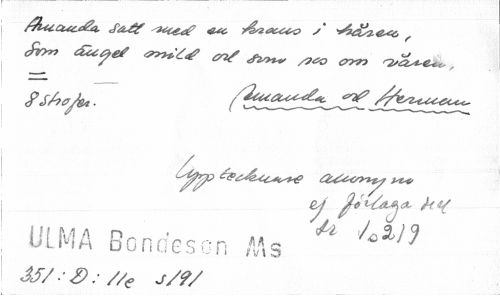 Amanda satt med en krans i håren,
Som ängel mild od som ros om våren.
8 strofer.
Amanda od Herman
Upptecknare anonym
ej förlaga
ULMA Bondeson Ms
351:D:11e s191